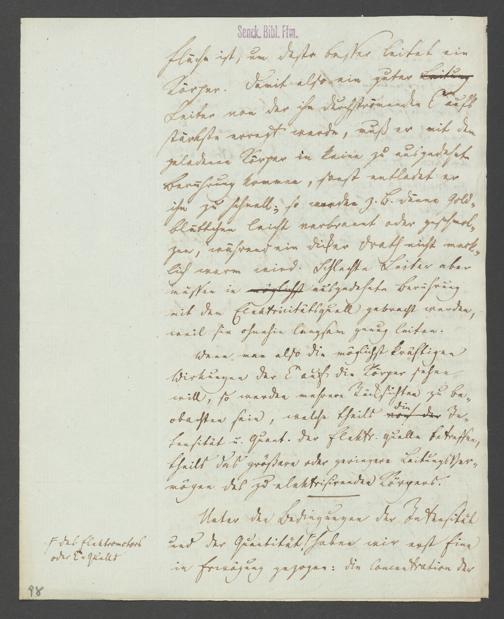 Senck. Bibl. Ffm.
Fläche ist, um desto besser leitet ein
Körper. Damit also ein guter Leitung
Leiter von der ihn durchströmenden E aufs
stärkste erregt werde, muß er mit dem
geladenen Körper in keine zu ausgedehnte
Berührung kommen, sonst entladet er
ihn zu schnell; so werden z. B. dünne Gold-
blättchen leicht verbrannt oder geschmol-
zen, während ein dicker Drath nicht merk-
lich warm wird. Schlechte Leiter aber
müssen in möglichst ausgedehnte Berührung
mit dem Elektricitätsquell gebracht werden,
weil sie ohnehin langsam genug leiten.
Wenn man also die möglichst kräftigen
Wirkungen der E auf die Körper sehen
will, so werden mehrere Rücksichten zu be-
obachten sein, welche theils die In-
tensität u. Quant. der Elektr. quelle betreffen,
theils das größere oder geringere Leitungsver-
mögen des zu elektrisirenden Körpers.
Unter den Bedingungen der Intensität
und der Quantität haben wir erst Eine
in Erwägung gezogen: die Concentration der
des Elektromotors
oder E-Quells
98